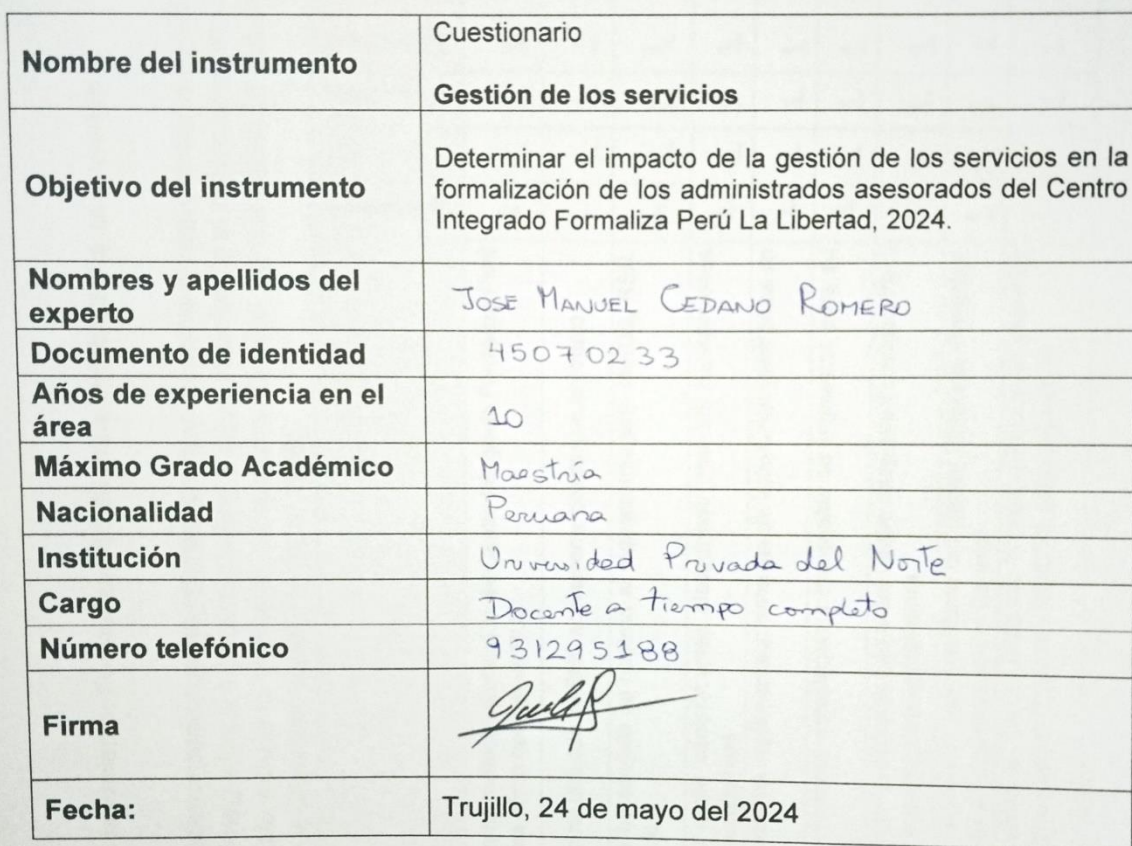 Nombre del instrumento
Cuestionario
Gestión de los servicios
Objetivo del instrumento
Determinar el impacto de la gestión de los servicios en la
formalización de los administrados asesorados del Centro
Integrado Formaliza Perú La Libertad, 2024.
Nombres y apellidos del
experto
JOSE MANUEL CEDANO ROMERO
Documento de identidad
45070233
Años de experiencia en el
área
10
Máximo Grado Académico
Maestría
Nacionalidad
Peruana
Institución
Universidad Privada del Norte
Cargo
Docente a tiempo completo
Número telefónico
931295188
Firma
Fecha:
Trujillo, 24 de mayo del 2024